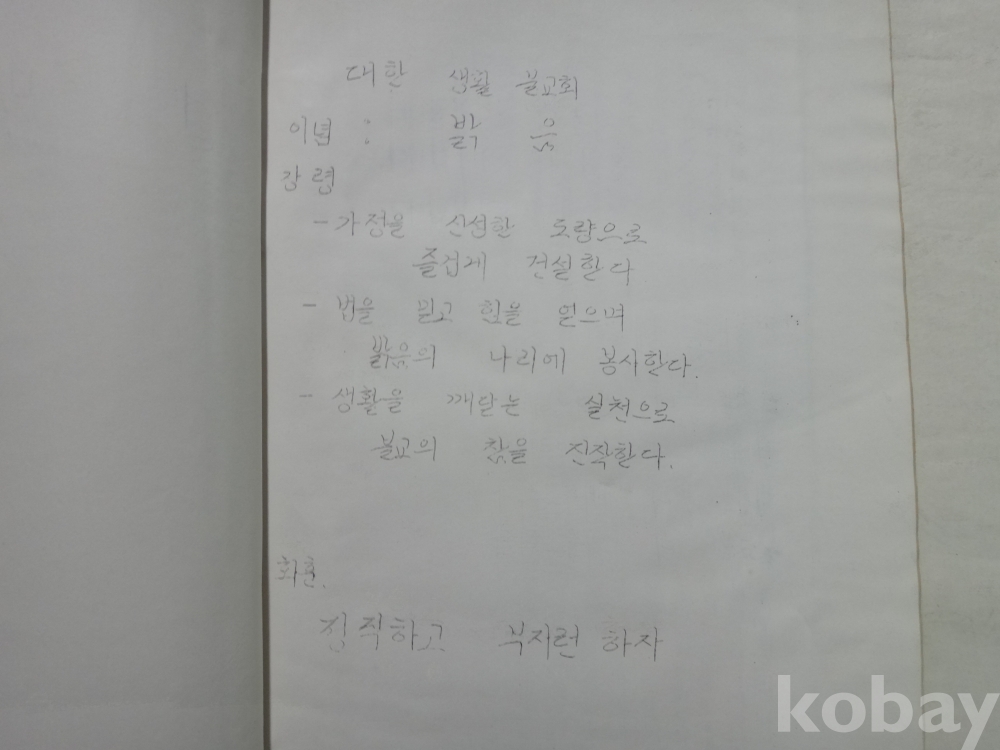 대한 생활 불교회
이념 : 밝 음
강령
- 가정을 신성한 도량으로
즐겁게 건설한다
- 법을 믿고 힘을 얻으며
밝음의 나라에 봉사한다.
- 생활을 깨닫는 실천으로
불교의 참을 진작한다.
회훈.
정직하고 부지런 하자
kobay